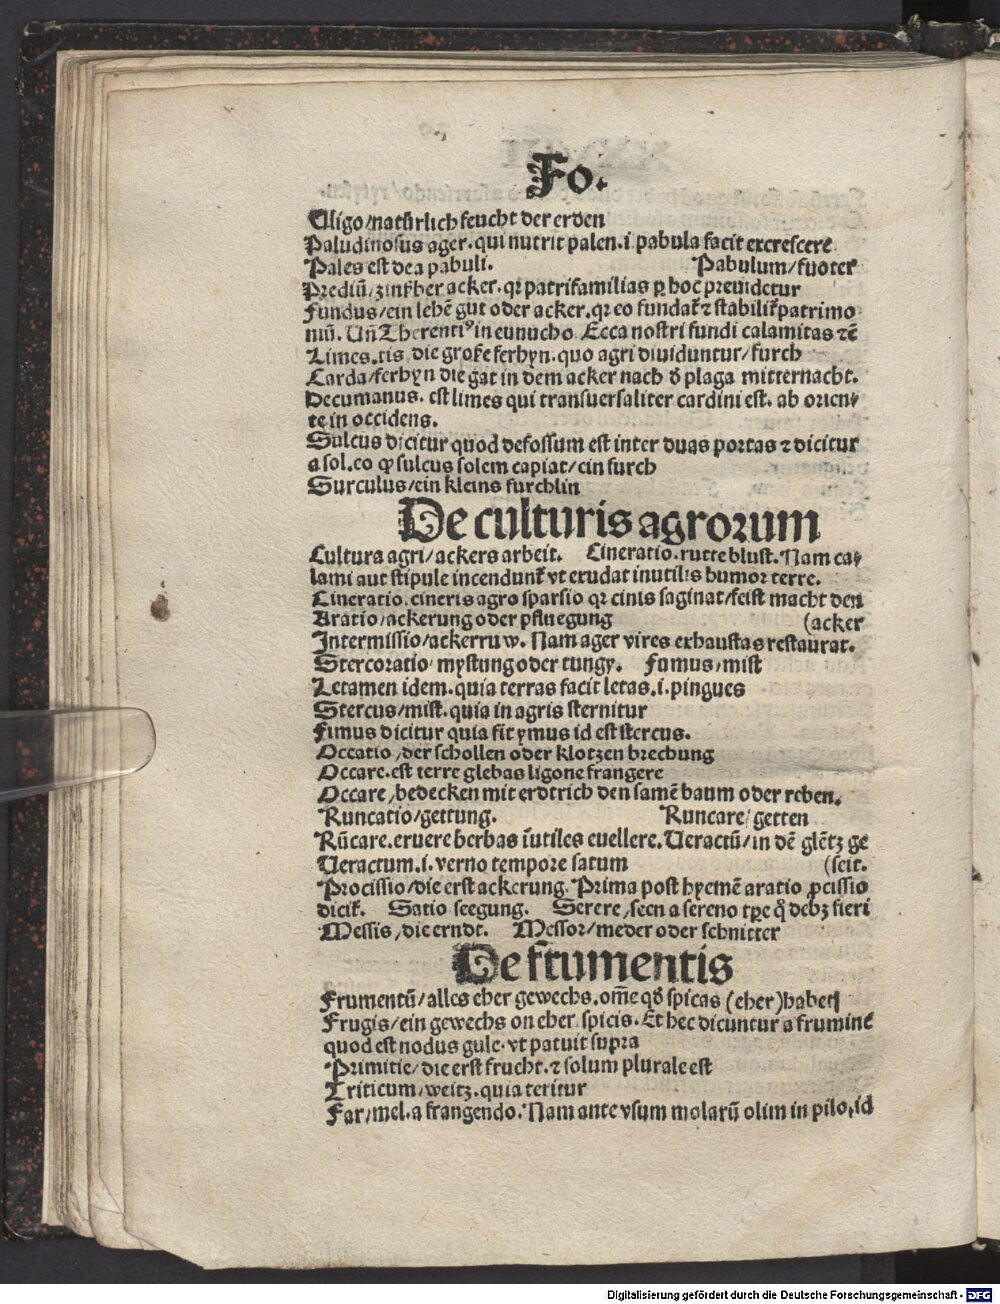 Fo.
Uligo/natürlich feucht der erden
Paludinosus ager. qui nutrit palen. i pabula facit excrescere
Pales est dea pabuli. Pabulum/fuoter
Prediū/zinßber acker. qꝛ patrifamilias ꝑ hoc preuidetur
Fundus/ein lehē gut oder acker. qꝛ eo fundat᷑ ⁊ stabilit᷑ patrimo
niū. Uñ Therentiꝰ in eunucho Ecca nostri fundi calamitas ⁊ē
Limes.tis die große ferhyn. quo agri diuiduntur/furch
Carda/ferhyn die gat in dem acker nach d̄ plaga mitternacht.
Decumanus. est limes qui transuersaliter cardini est. ab orien/
te in occidens.
Sulcus dicitur quod defossum est inter duas portas ⁊ dicitur
a sol. eo ꝙ sulcus solem capiat/ein furch
Surculus/ein kleins furchlin
De culturis agrorum
Cultura agri/ackers arbeit. Cineratio. rutte blust. Nam ca/
lami aut stipule incendunt᷑ vt exudat inutilis humor terre.
Cineratio. cineris agro sparsio qꝛ cinis saginat/feist macht den
Aratio/ackerung oder pfluegung (acker
Intermissio/ackerruw. Nam ager vires exhaustas restaurat.
Stercoratio mystung oder tungy. Fumus/mist
Letamen idem. quia terras facit letas. i. pingues
Stercus/mist. quia in agris sternitur
Fimus dicitur quia fit ymus id est stercus.
Occatio/der schollen oder klotzen brechung
Occare. est terre glebas ligone frangere
Occare/bedecken mit erdtrich den samē baum oder reben.
Runcatio/gettung. Runcare/getten
Rūcare. eruere herbas īutiles euellere. Ueractū/in dē glētz ge
Ueractum. i. verno tempore satum (seit.
Procissio/die erst ackerung. Prima post hyemē aratio ꝓcissio
dicit᷑. Satio seegung. Serere/seen a sereno tꝑe qͦ debꝫ fieri
Messis/die erndt. Messor/meder oder schnitter
De frumentis
Frumentū/alles eher gewechs. om̄e qd̄ spicas (eher) habet
Frugis/ein gewechs on eher spicis. Et hec dicuntur a fruminē
quod est nodus gule. vt patuit supra
Primitie/die erst frucht. ⁊ solum plurale est
Triticum/weitz. quia teritur
Far/mel. a frangendo. Nam ante vsum molarū olim in pilo, id
Digitalisierung gefördert durch die Deutsche Forschungsgemeinschaft - DFG